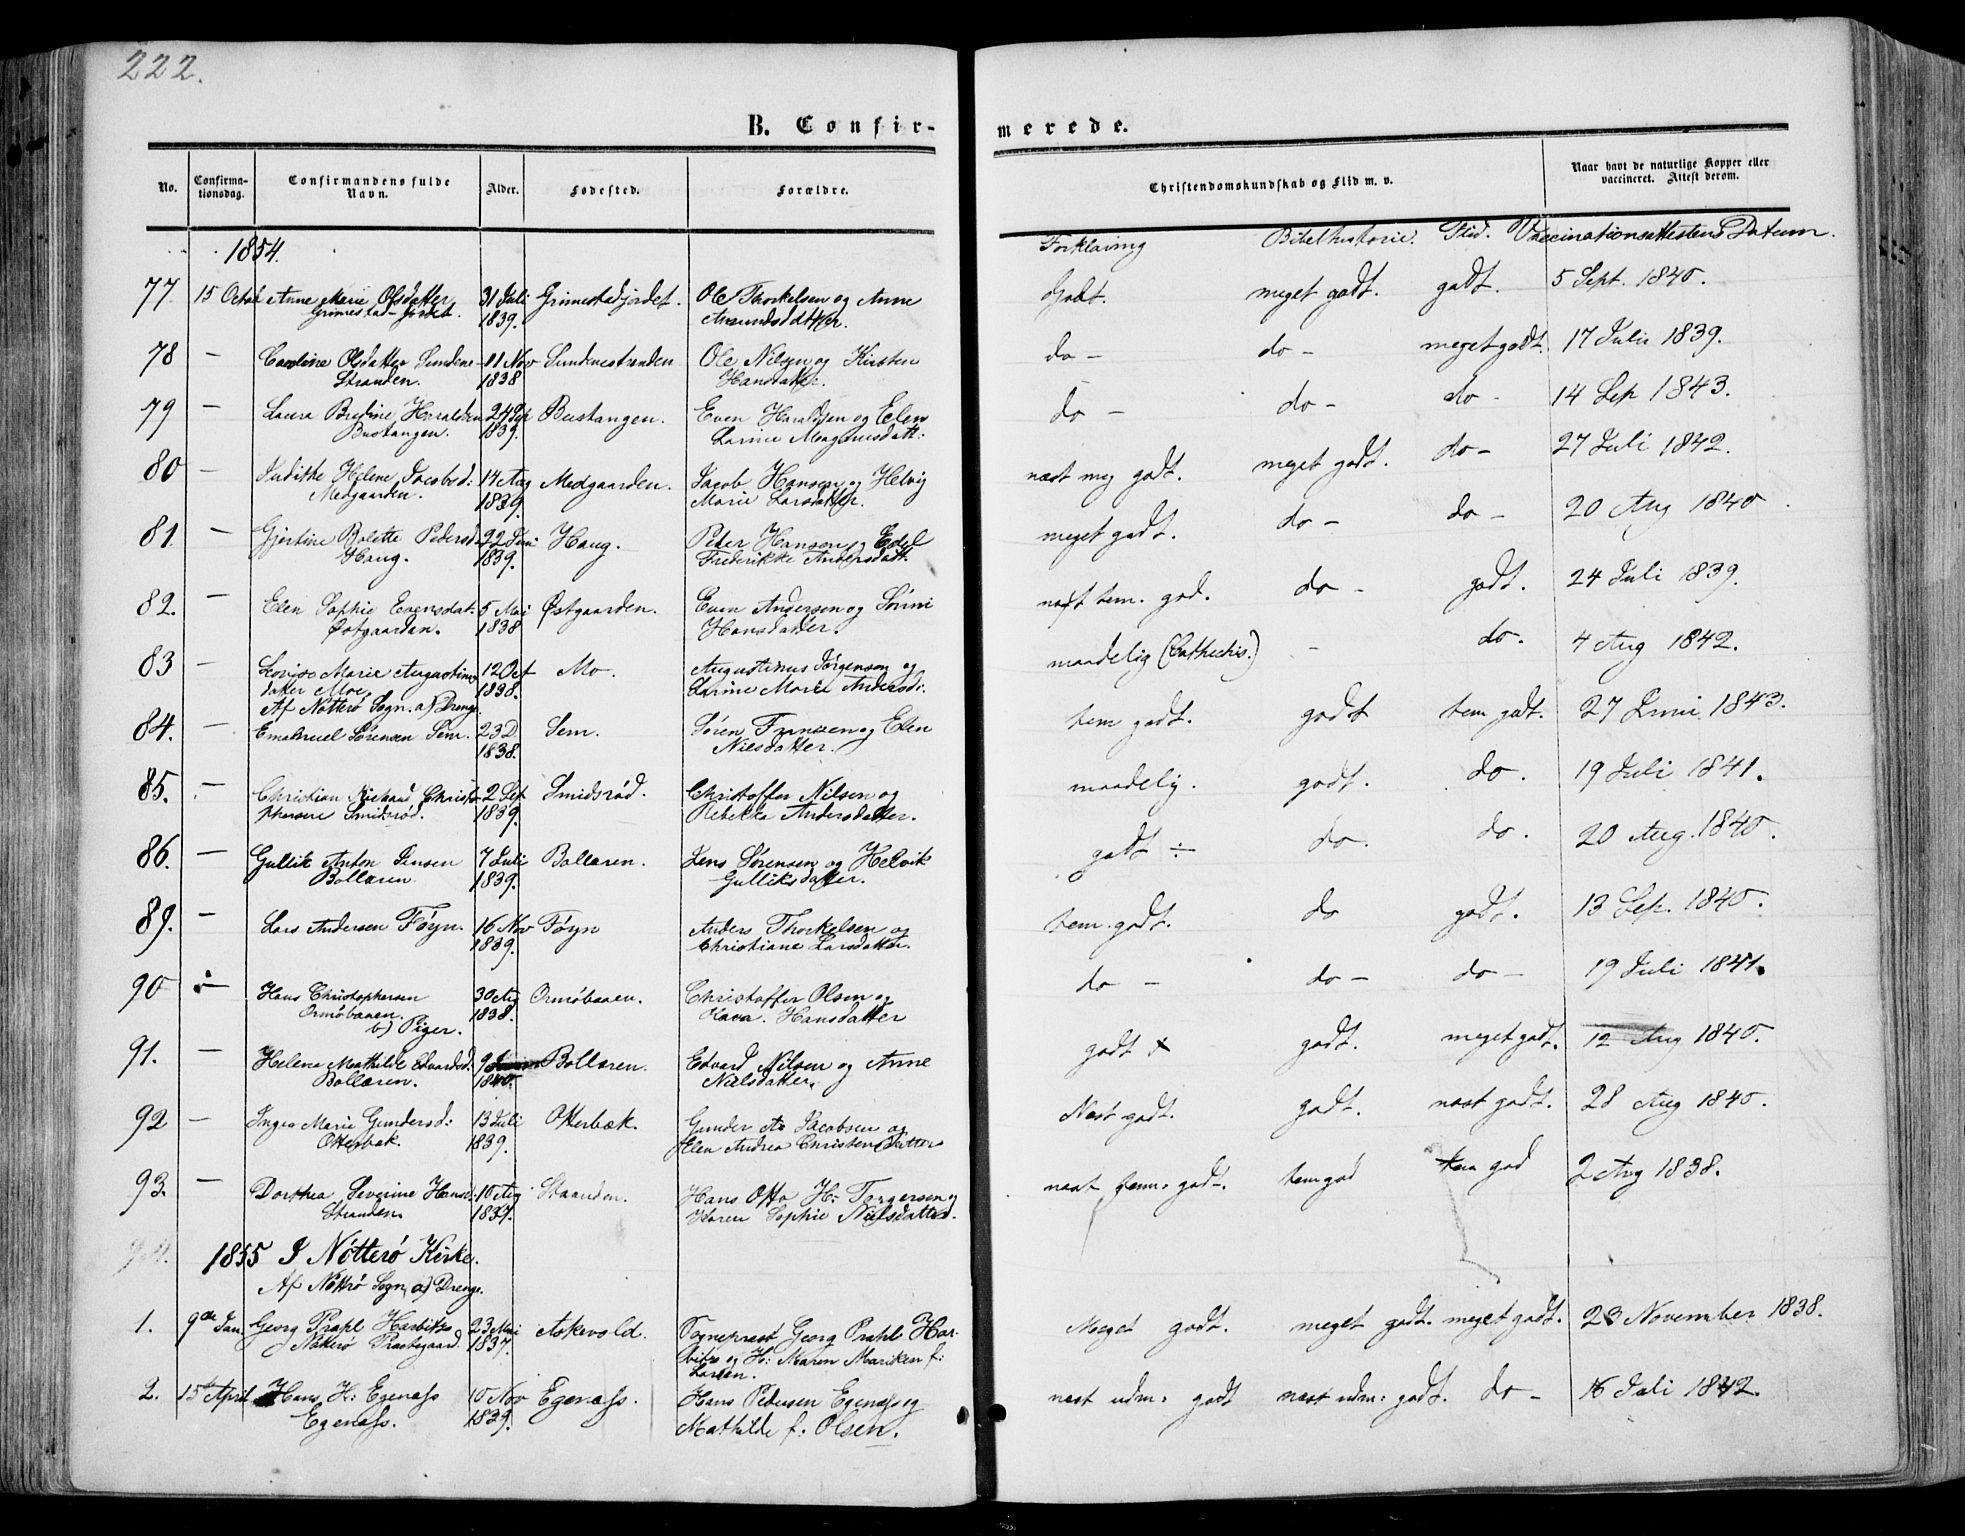 222.
B. Confir-
merede.
No.
Confirma-
tionsdag.
Confirmandens fulde
Navn.
Alder.
Fødested.
Forældre.
Christendomskundskab og Flid m. v.
Naar havt de naturlige Kopper eller
vaccineret. Attest derom.
1854. Forklaring Bibelhistorie. Flid. Vaccinationsattestens Datum.
77 15 Octob Anne Marie Olsdatter 31 Juli Grimestadjordet. Ole Thorkelsen og Anne Godt. meget godt. godt. 5 Sept. 1840.
Grimestad-Jordet. 1839. Amundsdatter.
78 — Caroline Olsdatter Sundene- 11 Nov Sundnestranden Ole Nilsen og Kirsten do — do — meget godt. 17 Julii 1839.
Stranden. 1838 Hansdatter.
79 — Laura Bredine Haraldsen 24 Sep Bustangen. Even Haraldsen og Elen do — do — do — 14 Sep 1843.
Bustangen. 1839. Larine Magnusdatt:
80 — Judithe Helene Jacobsd: 14 Aug Medgaarden. Jacob Hansen og Helvig næst meg godt. meget godt. do — 27 Juli 1842.
Medgaarden. 1839. Marie Larsdatter.
81. — Gjertine Bolette Pedersd. 22 Juni Haug. Peder Hansen og Edel meget godt. do — do — 20 Aug 1840
Haug. 1839. Frederikke Andersdatt.
82. — Elen Sophie Evensdat. 5 Mai Østgaarden. Even Andersen og Sørine næst tem. god. do — godt. 24 Juli 1839.
Østgaarden. 1838 Hansdatter.
83 — Lovise Marie Augustinus 12 Oct Mo. Augustinus Jørgensen og maadelig (Cathechis.) — do. 4 Aug 1842.
datter Moe. 1838. Larine Marie Andersd:
Af Nøtterø Sogn. a) Drenge.
84. — Emanuel Sørensen Sem. 23 D Sem. Søren Franzen og Elen tem godt. godt tem godt. 27 Juni 1843.
1838. Nilsdatter.
85. — Christian Richard Christo- 2 Sep Smidsrød. Christoffer Nilsen og maadelig. godt. do. 19 Juli 1841.
phersen Smidsrød. 1839. Rebekka Andersdatter.
86. — Gullik Anton Jensen 7 Juli Bollæren. Jens Sørensen og Helvik godt ÷ do. do. 20 Aug. 1840.
Bollæren 1839. Gulliksdatter.
89. — Lars Andersen Føyn. 16 Nov Føyn Anders Thorkelsen og tem. godt. do godt. 13 Sep. 1840.
1839. Christiane Larsdatter.
90 — Hans Christophersen 30 Aug Ormøbaaen. Christoffer Olsen og do — do — do — 19 Juli 1841.
Ormøbaaen. 1838. Hansdatter
b) Piger.
91. — Helene Mathilde Edvardsd: 9 Bollæren. Edvard Nilsen og Anne godt × godt. meget godt. 12 Aug 1840.
Bollæren. 1840. Nielsdatter.
92 — Inger Marie Gundersd: 13 Juli Otterbæk. Gunder As Jacobsen og Næst godt. godt. næst godt. 28 Aug 1840.
Otterbæk. 1839. Elen Andrea Christensdatter
93. — Dorthea Severine Hansd: 10 Aug Straanden. Hans Otto H: Torgersen og næst tem: godt. tem god tem god 2 Aug 1838.
Stranden. 1837. Karen Sophie Nielsdatter.
94. 1855 I Nøtterø Kirke.
Af Nøtterø Sogn, a) Drenge.
1. 9de Jan. Georg Prahl Harbitz 23 Mai Askevold. Sogneprest Georg Prahl Har- Meget godt. meget godt. meget godt. 23 November 1838.
Nøtterø Præstegaard. 1837. bitz og H: Maren Mariken f:
Larsen.
2. 15de April Hans H: Egenæss 10 Nov Egenæss. Hans Pedersen Egenæss og næst udm: godt næst udm: godt. do — 16 Juli 1842.
Egenæss. 1839. Mathilde f. Olsen.